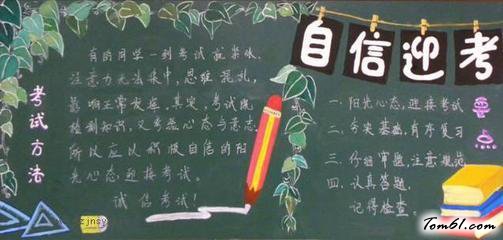 考试方法
有的同学一到考试就紧张、
注意力无法集中,思维混乱,
影响正常发挥。其实,考试既
检测知识,又考验心态与意志。
所以应以积极自信的阳
光心态迎接考试。
诚信考试!
自信迎考
一、阳光心态,迎接考试
二、夯实基础,有序复习
三、仔细审题,注意规范
四、认真答题,
记得检查。
zjnsy
Tom61.com